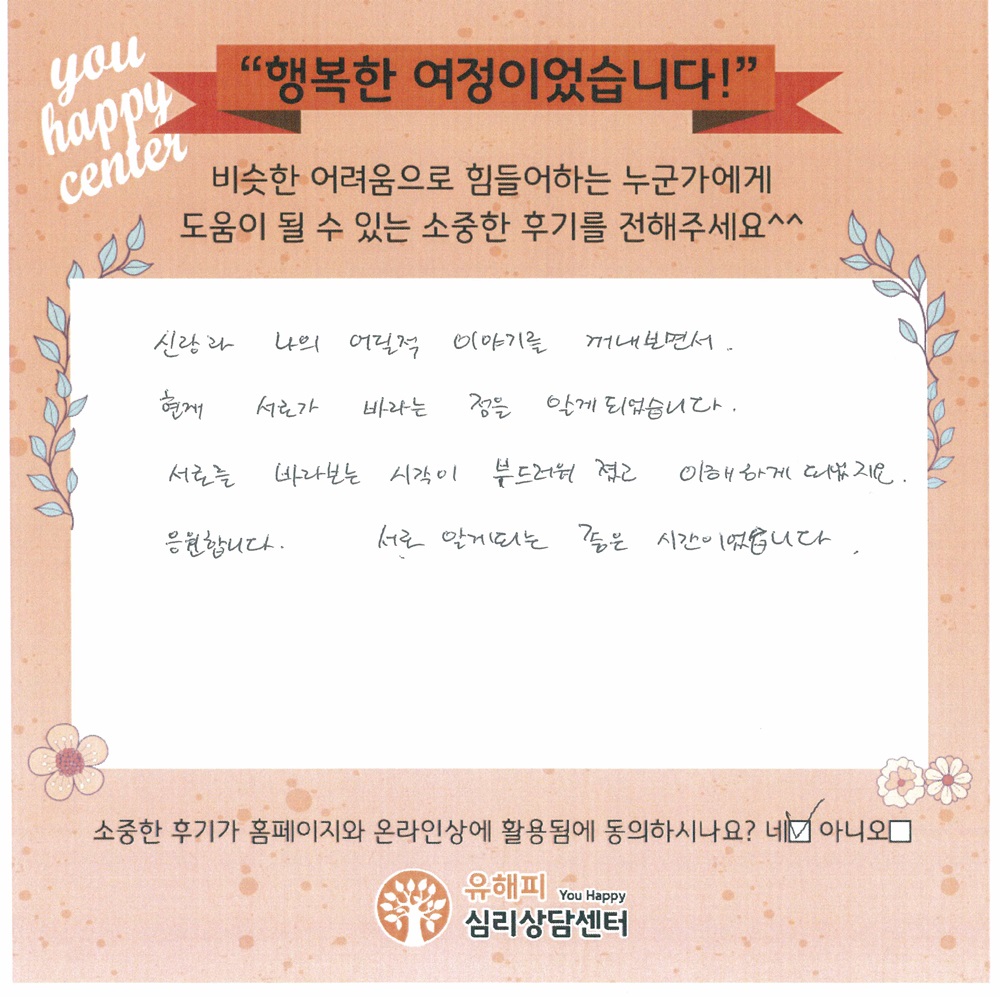 you
happy
center
“행복한 여정이었습니다!”
비슷한 어려움으로 힘들어하는 누군가에게
도움이 될 수 있는 소중한 후기를 전해주세요^^
신랑과 나의 어릴적 이야기를 꺼내보면서.
현재 서로가 바라는 점을 알게되었습니다.
서로를 바라보는 시각이 부드러워 졌고 이해하게 되었지요.
응원합니다. 서로 알게되는 좋은 시간이었습니다.
소중한 후기가 홈페이지와 온라인상에 활용됨에 동의하시나요? 네☑ 아니오☐
유해피 You Happy
심리상담센터